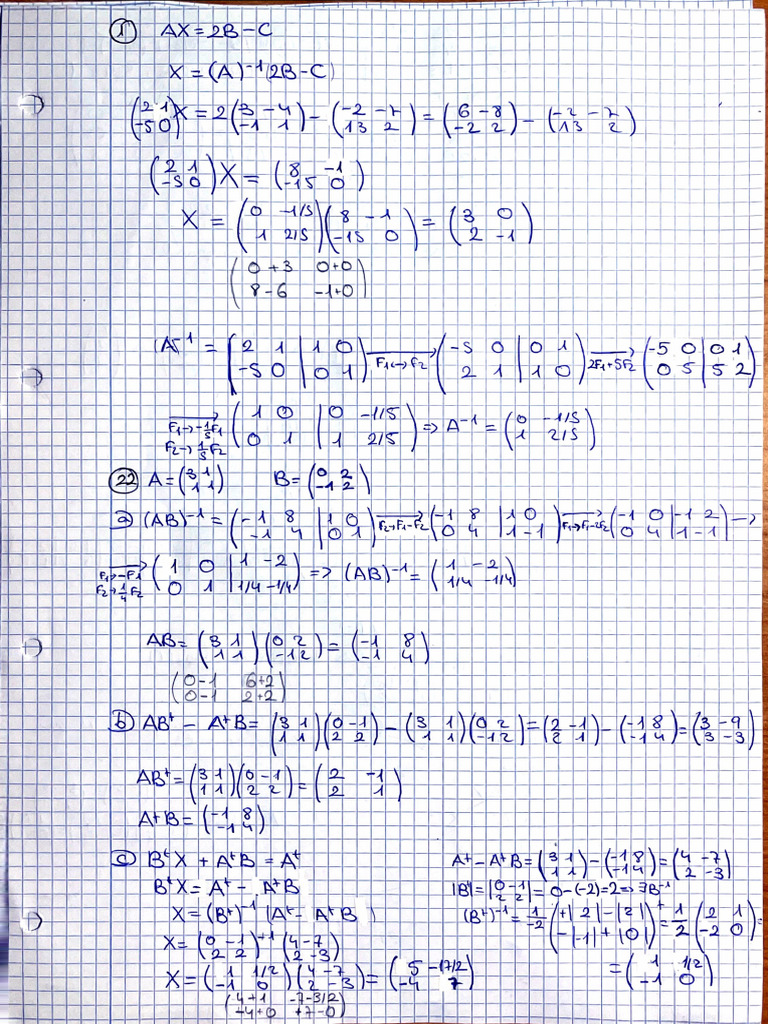 1) AX = 2B - C
X = (A)⁻¹(2B - C)
(2 1 / -5 0) X = 2 (3 -4 / -1 1) - (-2 -7 / 13 2) = (6 -8 / -2 2) - (-2 -7 / 13 2)
(2 1 / -5 0) X = (8 -1 / -15 0)
X = (0 -1/5 / 1 2/5) (8 -1 / -15 0) = (3 0 / 2 -1)
(0+3 0+0 / 8-6 -1+0)
A⁻¹ = (2 1 | 1 0 / -5 0 | 0 1) F1↔F2 → (-5 0 | 0 1 / 2 1 | 1 0) 2F1+5F2 → (-5 0 | 0 1 / 0 5 | 5 2)
F1→-1/5F1 F2→1/5F2 → (1 0 | 0 -1/5 / 0 1 | 1 2/5) => A⁻¹ = (0 -1/5 / 1 2/5)
22 A = (3 1 / 1 1) B = (0 2 / -1 2)
a) (AB)⁻¹ = (-1 8 | 1 0 / -1 4 | 0 1) F2→F1-F2 → (-1 8 | 1 0 / 0 4 | 1 -1) F1→F1-2F2 → (-1 0 | -1 2 / 0 4 | 1 -1) →
F1→-F1 F2→1/4F2 → (1 0 | 1 -2 / 0 1 | 1/4 -1/4) => (AB)⁻¹ = (1 -2 / 1/4 -1/4)
AB = (3 1 / 1 1) (0 2 / -1 2) = (-1 8 / -1 4)
(0-1 6+2 / 0-1 2+2)
b) ABᵗ - AᵗB = (3 1 / 1 1) (0 -1 / 2 2) - (3 1 / 1 1) (0 2 / -1 2) = (2 -1 / 2 1) - (-1 8 / -1 4) = (3 -9 / 3 -3)
ABᵗ = (3 1 / 1 1) (0 -1 / 2 2) = (2 -1 / 2 1)
AᵗB = (-1 8 / -1 4)
c) BᵗX + AᵗB = Aᵗ
BᵗX = Aᵗ - AᵗB
X = (Bᵗ)⁻¹ (Aᵗ - AᵗB)
X = (0 -1 / 2 2)⁻¹ (4 -7 / 2 -3)
X = (1 1/2 / -1 0) (4 -7 / 2 -3) = (5 -17/2 / -4 7)
(4+1 -7-3/2 / -4+0 +7-0)
Aᵗ - AᵗB = (3 1 / 1 1) - (-1 8 / -1 4) = (4 -7 / 2 -3)
|B| = |0 -1 / 2 2| = 0-(-2) = 2 => ∃B⁻¹
(Bᵗ)⁻¹ = 1/-2 (+|2| -|2| / -|-1| +|0|)ᵗ = 1/2 (2 1 / -2 0) =
= (1 1/2 / -1 0)